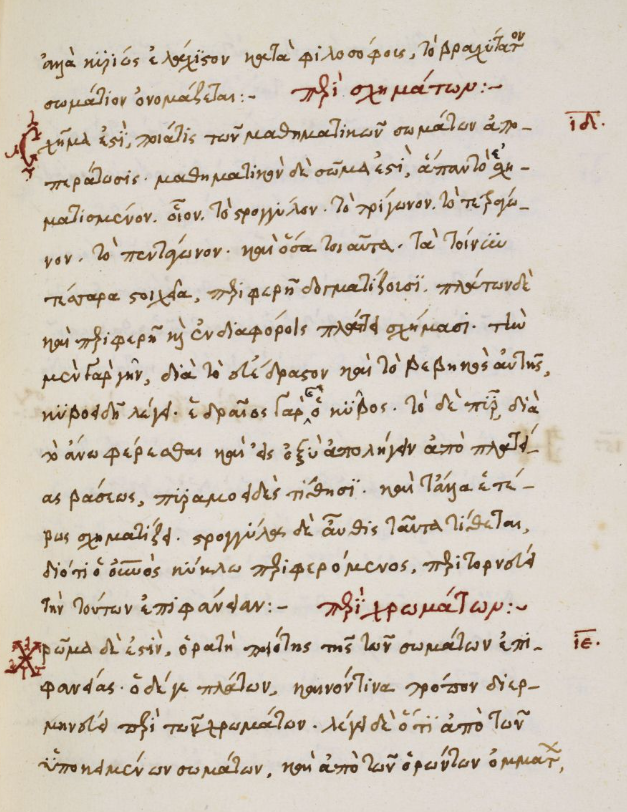 ἀλλὰ κυρίως ἐλάχιστον κατὰ φιλοσόφοις, τὸ βραχύτατον
σωμάτιον ὀνομάζεται:- περὶ σχημάτων:-
Σχῆμα ἐστὶ, ποιάτις τῶν μαθηματικῶν σωμάτων ἀπο- ιδ.
περάτωσις. μαθηματικὸν δὲ σῶμα ἐστὶ, ἅπαν τὸ ἐσχη-
ματισμένον. οἷον, τὸ στρογγύλον. τὸ τρίγωνον. τὸ τετράγω-
νον. τὸ πεντάγωνον. καὶ ὅσα τοιαῦτα. τὰ τοίνυν
τέσσαρα στοιχεῖα, περιφερῆ δογματίζουσι. πλάτων δὲ
καὶ περιφερῆ καὶ ἐν διαφόροις πλάττει σχήμασι. τὴν
μὲν γὰρ γῆν, διὰ τὸ καὶ τὸ βεβηκὸς αὐτῆς,
κυβοειδῆ λέγει. ἑδραῖος γὰρ ὁ κύβος. τὸ δὲ πῦρ, διὰ
τὸ ἄνω φέρεσθαι καὶ εἰς ὀξὺ ἀπολήγειν ἀπὸ πλατεί-
ας βάσεως, πυραμοειδὲς τίθησι. καὶ τἄλλα ἑτέ-
ρως σχηματίζει. στρογγύλα δὲ αὖθις ταῦτα τίθεται,
διότι ὁ οὐνὸς κύκλω περιφερόμενος, περιτορνεύει
τὴν τούτων ἐπιφάνειαν:- περὶ χρωμάτων:-
Χρῶμα δὲ ἐστὶν, ὁρατὴ ποιότης τῆς τῶν σωμάτων ἐπι- ιε.
φανείας. ὁ δέ γε πλάτων, καινόν τινα τρόπον διερ-
μηνεύει περὶ τῶν χρωμάτων. λέγει δὲ ὅτι ἀπὸ τῶν
ὑποκειμένων σωμάτων, καὶ ἀπὸ τῶν ὁρώντων ὀμμάτων,